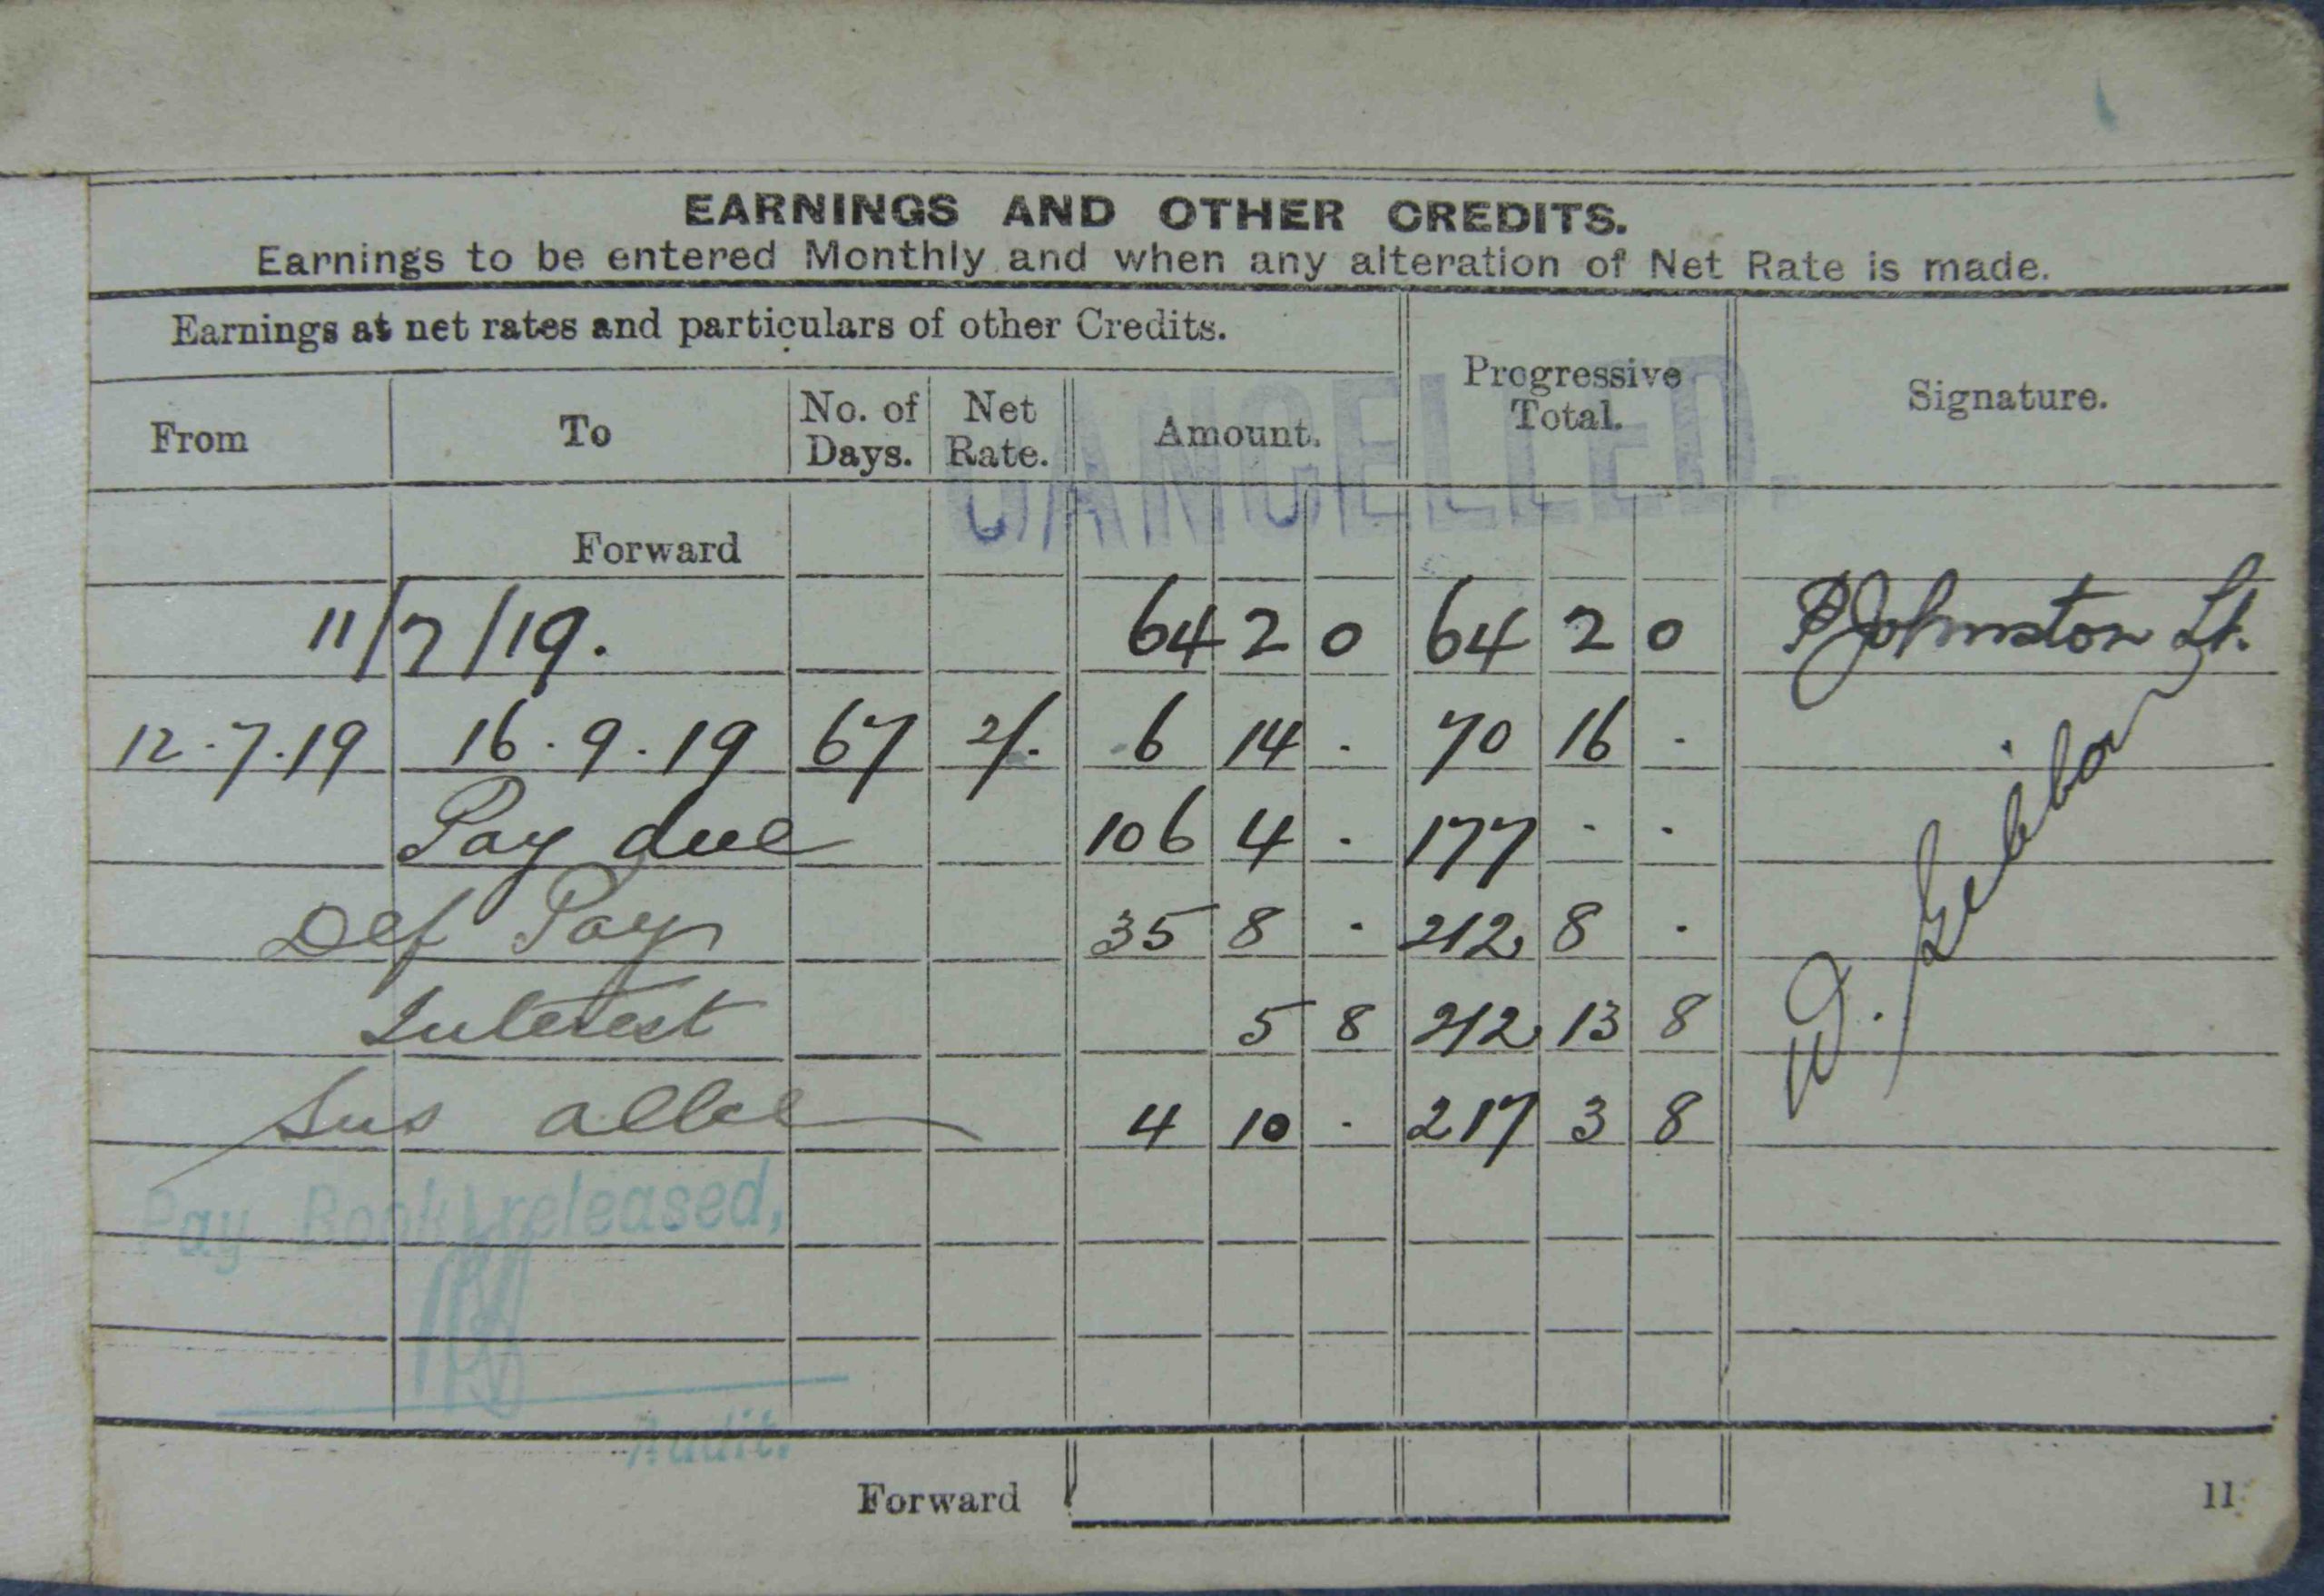 EARNINGS AND OTHER CREDITS.
Earnings to be entered Monthly and when any alteration of Net Rate is made.
Earnings at net rates and particulars of other Credits.
From To No. of Days. Net Rate. Amount. Progressive Total. Signature.
CANCELLED.
Forward
11/7/19. 64 2 0 64 2 0 Johnston Lt.
12.7.19 16.9.19 67 2/. 6 14 . 70 16 .
Pay due 106 4 . 177 . .
Def Pay 35 8 . 212 8 .
Interest 5 8 212 13 8
Sus allce 4 10 . 217 3 8
Pay Book released,
Audit.
Forward
11